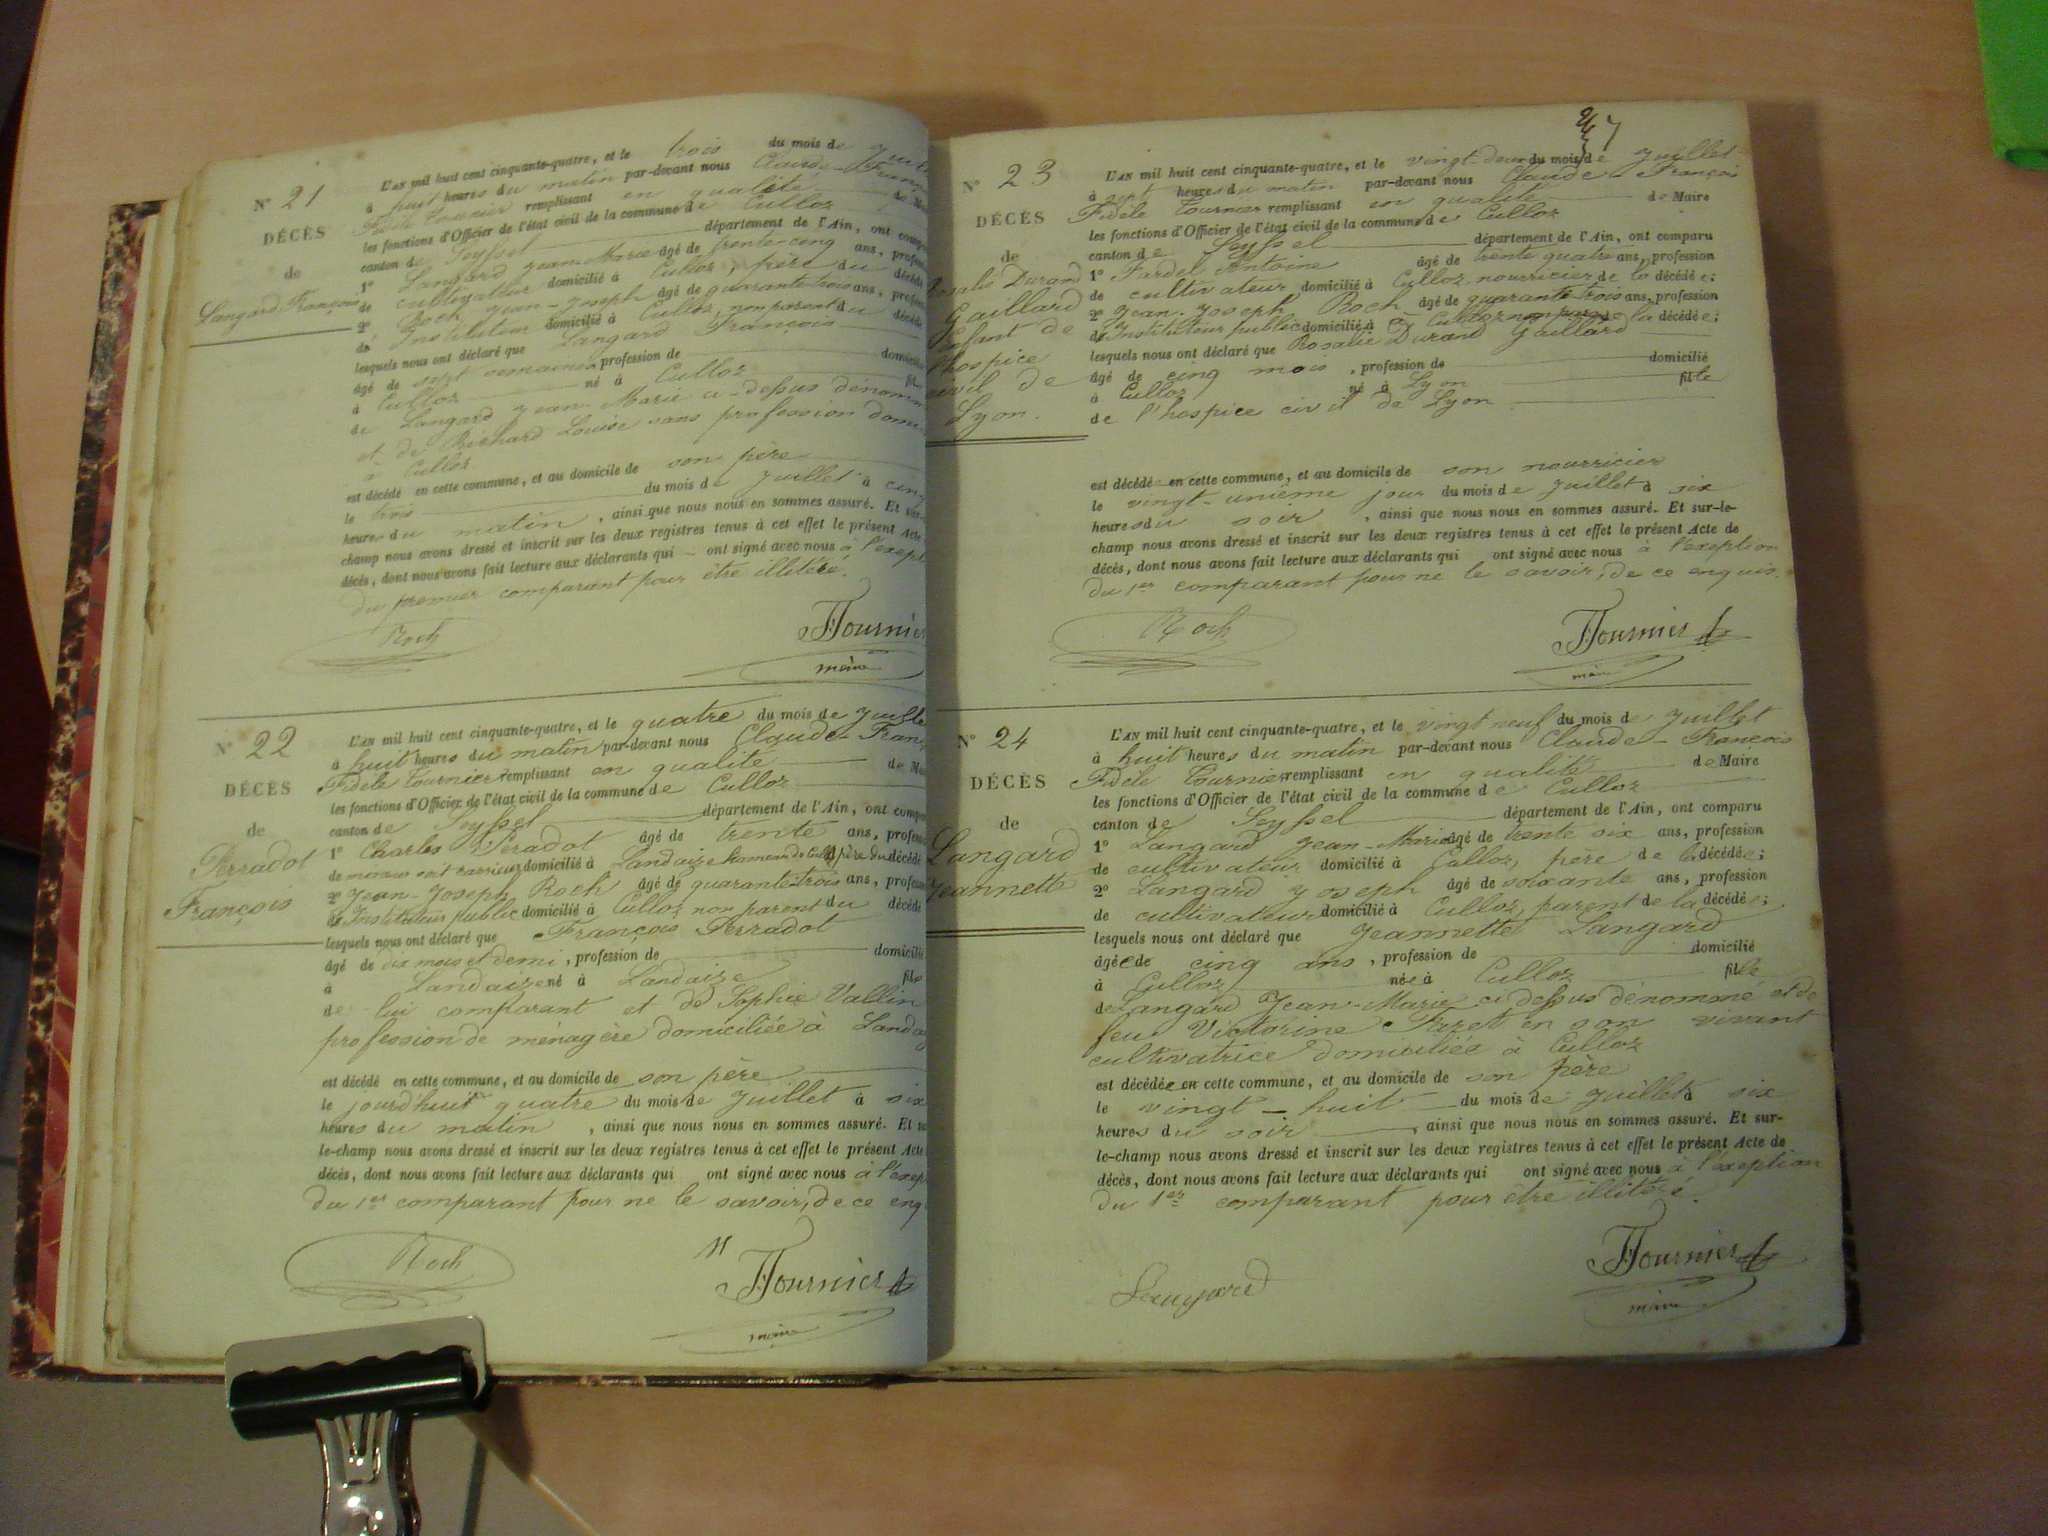 N° 21
DÉCÈS
de
Langard François
L'AN mil huit cent cinquante-quatre, et le trois du mois de
à huit heures du matin par-devant nous Claude-Fran
Fidèle Tournier remplissant en qualité de Ma
les fonctions d'Officier de l'état civil de la commune de Culloz
canton de Seyssel département de l'Ain, ont comp
1° Langard Jean Marie âgé de trente-cinq ans, profes
de cultivateur domicilié à Culloz, père du décédé
2° Roch Jean-Joseph âgé de quarante trois ans, profes
de Instituteur domicilié à Culloz, non parent du décédé
lesquels nous ont déclaré que Langard François
âgé de sept semaines, profession de domicilié
à Culloz né à Culloz fils
de Langard Jean-Marie ci-dessus dénomm
et de Richard Louise sans profession domi
à Culloz
est décédé en cette commune, et au domicile de son père
le trois du mois de Juillet à cinq
heures du matin, ainsi que nous nous en sommes assuré. Et sur-
champ nous avons dressé et inscrit sur les deux registres tenus à cet effet le présent Acte
décès, dont nous avons fait lecture aux déclarants qui – ont signé avec nous à l'exept
du premier comparant pour être illitéré.
Roch
Tournier
maire
N° 22
DÉCÈS
de
Perradot
François
L'AN mil huit cent cinquante-quatre, et le quatre du mois de Juille
à huit heures du matin par-devant nous Claude-Fran
Fidèle Tournier remplissant en qualité de Ma
les fonctions d'Officier de l'état civil de la commune de Culloz
canton de Seyssel département de l'Ain, ont comp
1° Charles Peradot âgé de trente ans, profess
domicilié à Landaize hameau de Culloz père du décédé
2° Jean-Joseph Roch âgé de quarante-trois ans, profess
de Instituteur public domicilié à Culloz non parent du décédé
lesquels nous ont déclaré que François Perradot
âgé de dix mois et demi, profession de domicilié
à Landaize né à Landaize fils
de lui comparant et de Sophie Vallin
profession de ménagère domiciliée à Landa
est décédé en cette commune, et au domicile de son père
le jourdhuit quatre du mois de Juillet à six
heures du matin, ainsi que nous nous en sommes assuré. Et su
le-champ nous avons dressé et inscrit sur les deux registres tenus à cet effet le présent Acte
décès, dont nous avons fait lecture aux déclarants qui ont signé avec nous à l'exep
du 1er comparant pour ne le savoir, de ce enq
Roch
Tournier
maire
7
N° 23
DÉCÈS
de
Rosalie Durand
Gaillard
Enfant de
l'hospice
civil de
Lyon.
L'AN mil huit cent cinquante-quatre, et le vingt-deux du mois de Juillet
à sept heures du matin par-devant nous Claude-François
Fidèle Tournier remplissant en qualité de Maire
les fonctions d'Officier de l'état civil de la commune de Culloz
canton de Seyssel département de l'Ain, ont comparu
1° Fardel Antoine âgé de trente quatre ans, profession
de cultivateur domicilié à Culloz nourricier de la décédée;
2° Jean-Joseph Roch âgé de quarante trois ans, profession
de Instituteur public domicilié à Culloz non parent de la décédée;
lesquels nous ont déclaré que Rosalie Durand Gaillard
âgé de cinq mois, profession de domicilié
à Culloz né à Lyon fille
de l'hospice civil de Lyon
est décédée en cette commune, et au domicile de son nourricier
le vingt-unième jour du mois de Juillet à six
heures du soir, ainsi que nous nous en sommes assuré. Et sur-le-
champ nous avons dressé et inscrit sur les deux registres tenus à cet effet le présent Acte de
décès, dont nous avons fait lecture aux déclarants qui ont signé avec nous à l'exeption
du 1er comparant pour ne le savoir, de ce enquis.
Roch
Tournier
maire
N° 24
DÉCÈS
de
Langard
Jeannette
L'AN mil huit cent cinquante-quatre, et le vingt neuf du mois de Juillet
à huit heures du matin par-devant nous Claude-François
Fidèle Tournier remplissant en qualité de Maire
les fonctions d'Officier de l'état civil de la commune de Culloz
canton de Seyssel département de l'Ain, ont comparu
1° Langard Jean-Marie âgé de trente six ans, profession
de cultivateur domicilié à Culloz, père de la décédée;
2° Langard Joseph âgé de soixante ans, profession
de cultivateur domicilié à Culloz, parent de la décédée;
lesquels nous ont déclaré que Jeannette Langard
âgée de cinq ans, profession de domicilié
à Culloz née à Culloz fille
de Langard Jean-Marie ci dessus dénommé et de
feu Victorine en son vivant
cultivatrice domiciliée à Culloz
est décédée en cette commune, et au domicile de son père
le vingt-huit du mois de Juillet à six
heures du soir, ainsi que nous nous en sommes assuré. Et sur-
le-champ nous avons dressé et inscrit sur les deux registres tenus à cet effet le présent Acte de
décès, dont nous avons fait lecture aux déclarants qui ont signé avec nous à l'exeption
du 1er comparant pour être illitéré.
Langard
Tournier
maire